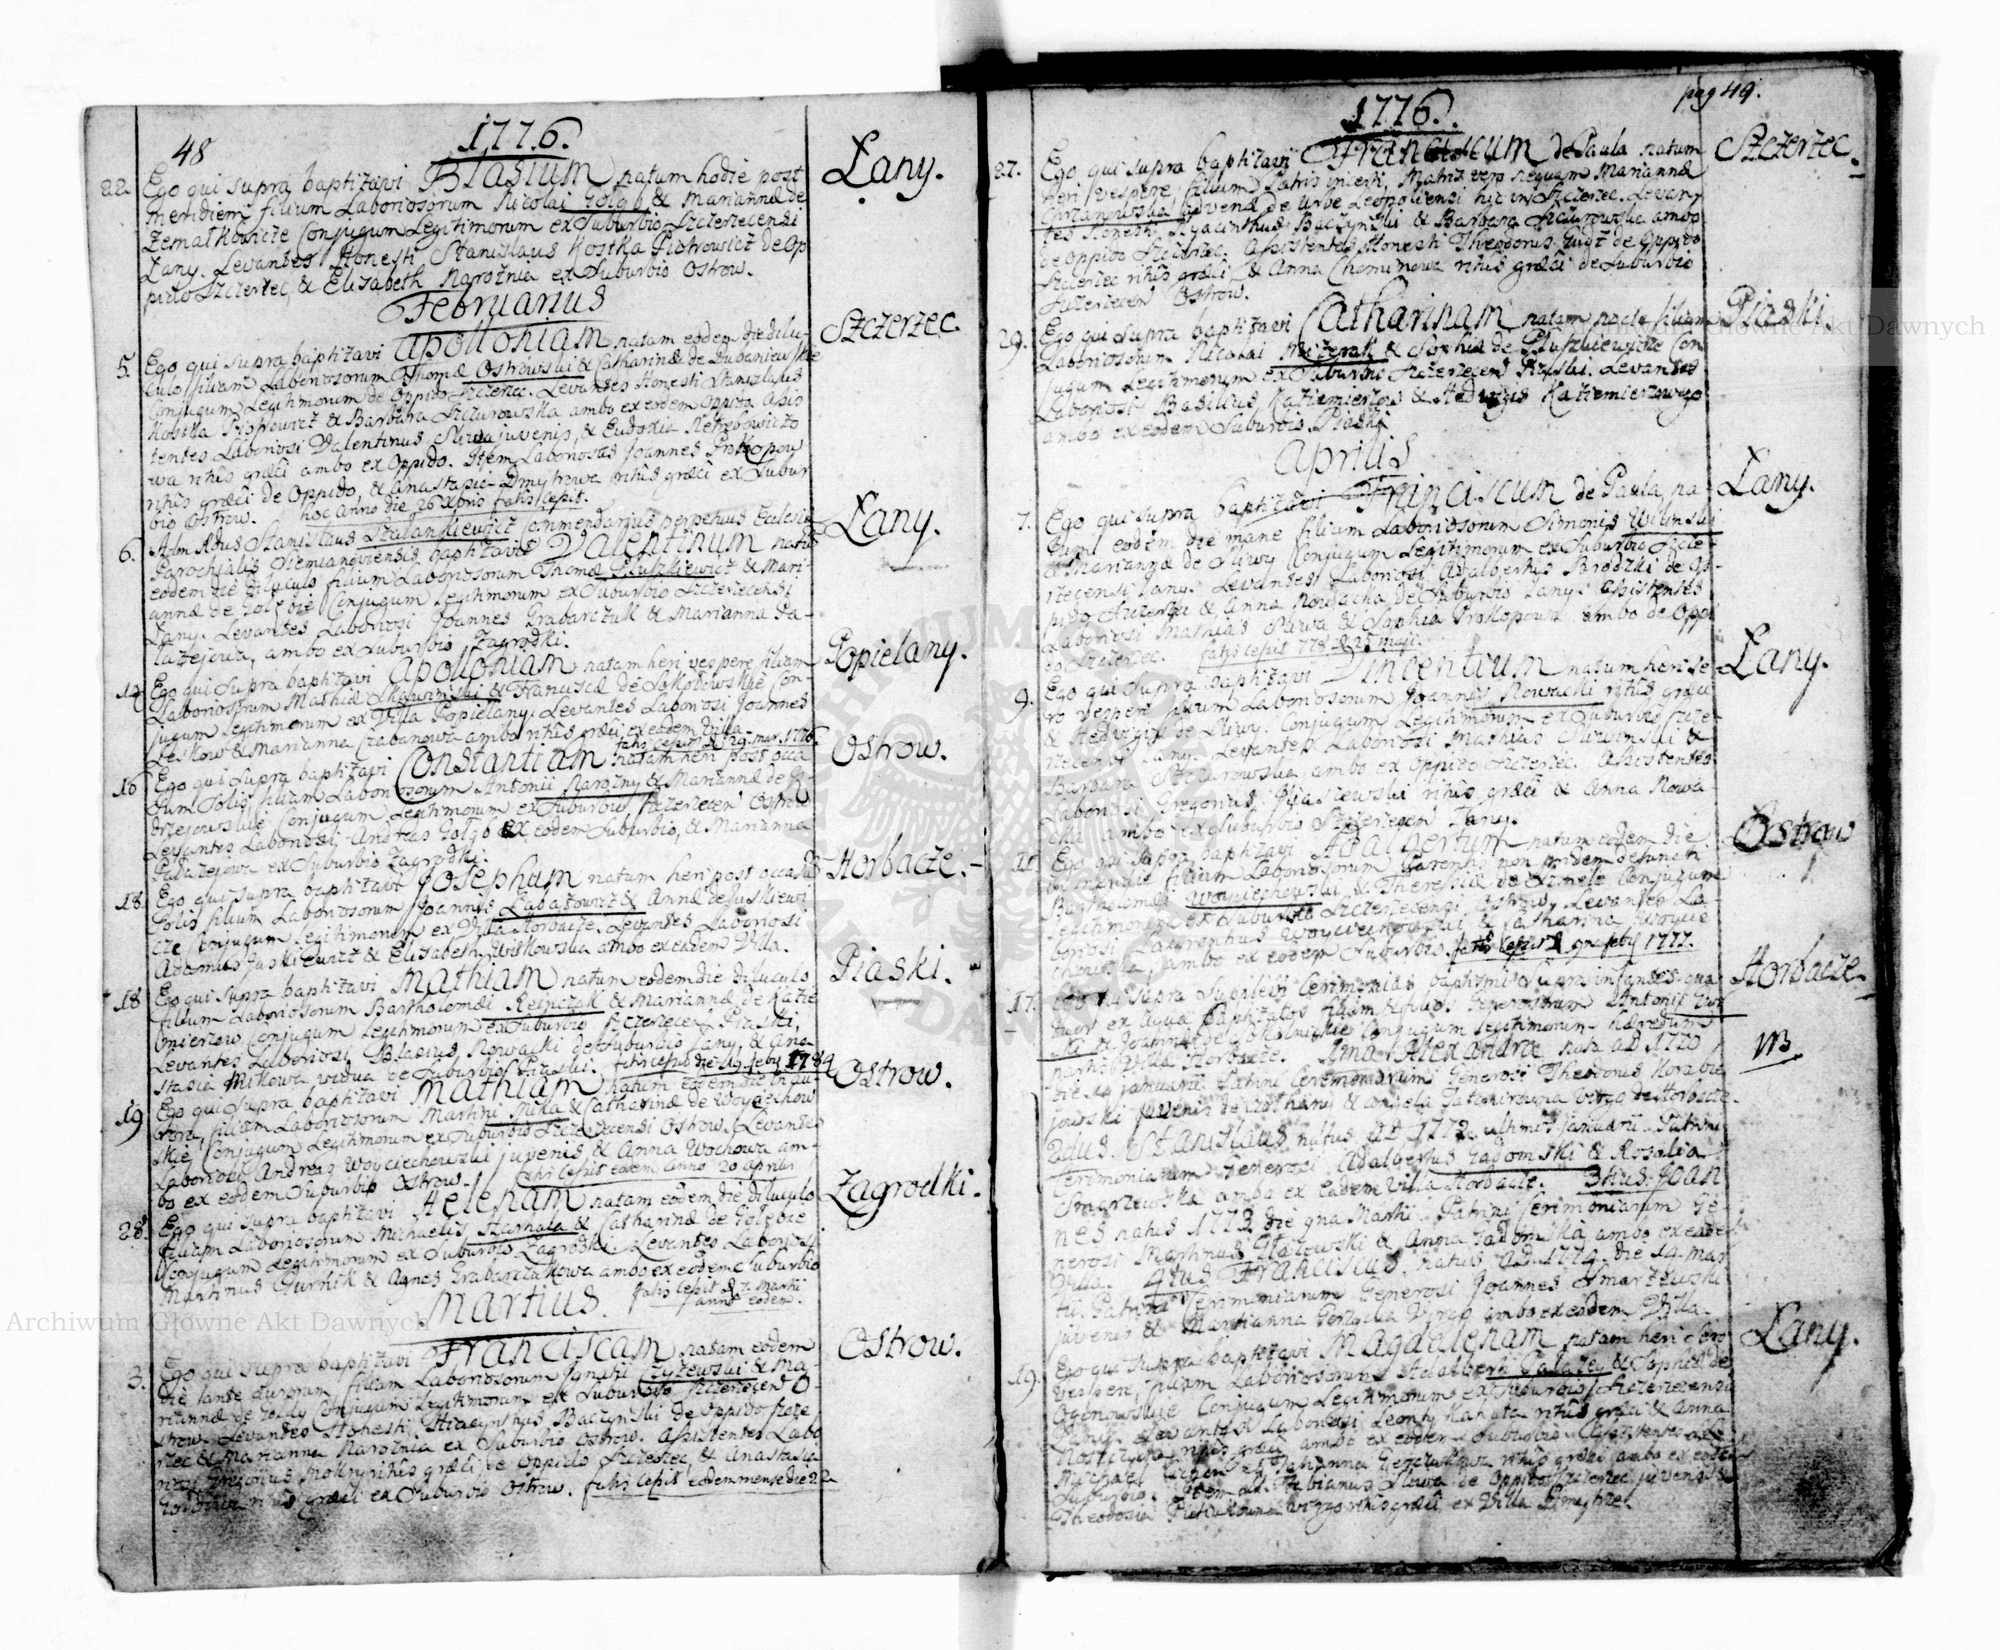 48
1776.
22. Ego qui supra baptizavi Blasium natum hodie post
meridiem filium Laboriosorum Nicolai Gołąb & Mariannæ de
Zemałkowicze Conjugum Legitimorum ex Suburbio Szczerzecensi
Łany. Levantes Honesti Stanislaus Kostka Piotrowicz de Op
pido Szczerzec, & Elisabeth Narożnia ex Suburbio Ostrow.
Łany.
Februarius
5. Ego qui supra baptizavi Apolloniam natam eodem die dilu-
culo filiam Laboriosorum Thomæ Ostrowski & Catharinæ de Dubaniewskie
Conjugum Legitimorum de Oppido Szczerzec. Levantes Honesti Stanislaus
Kostka Piotrowicz & Barbara Szczurowska ambo ex eodem Oppido. Assis
tentes Laboriosi Valentinus Sliwa juvenis, & Eudoxia
wa ritus græci ambo ex Oppido. Item Laboriosus Joannes Prokopow
ritus græci de Oppido, & Anastasia Dmytrowa ritus græci ex Subur
bio Ostrow. hoc Anno die 26 Xbris fatis cessit.
Szczerzec.
6. Adm Rdus Stanislaus Szalankiewicz Commendarius perpetuus Ecclesiæ
Parochialis Siemianoviensis baptizavit Valentinum natum
eodem die diluculo filium Laboriosorum Thomæ Pluszkiewicz & Mari-
annæ de Gołębie Conjugum Legitimorum ex Suburbio Szczerzecensi
Łany. Levantes Laboriosi Joannes Grabarczuk & Marianna Pa-
łazejowa, ambo ex Suburbio Zagrodki.
Łany.
14 Ego qui supra baptizavi Apolloniam natam heri vespere filiam
Laboriosorum Mathiæ Skawinski & Franciscæ de Sokołowskie Con-
jugum Legitimorum ex Villa Popielany. Levantes Laboriosi Joannes
Leskow & Marianna Czabanowa ambo ritus græci ex eadem Villa
fatis cessit d. 29. mar. 1776.
Popielany.
16 Ego qui supra baptizavi Constantiam natam heri post occa
sum Solis filiam Laboriosorum Antonii Narożny & Mariannæ de
drzejowskie Conjugum Legitimorum ex Suburbio Szczerzecen Ostrow
Levantes Laboriosi Andreas Gołąb ex eodem Suburbio, & Marianna
Pałazejowa ex Suburbio Zagrodki.
Ostrow.
18. Ego qui supra baptizavi Josephum natum heri post occasum
Solis filium Laboriosorum Joannis Łabaiowicz & Annæ de Juskiewi
cze Conjugum Legitimorum ex Villa Horbacze. Levantes Laboriosi
Adamus Juskiewicz & Elisabeth Witkowska ambo ex eadem Villa.
Horbacze.
18 Ego qui supra baptizavi Mathiam natum eodem die diluculo
filium Laboriosorum Bartholomæi Reinczak & Mariannæ de Kazie
mierzow Conjugum Legitimorum ex Suburbio Szczerzecen Piaski,
Levantes Laboriosi Blasius Nowacki de Suburbio Łany, & Ana
stasia Mikowa vidua de Suburbio Piaski. fatis cessit die 19. feby 1784
Piaski.
19 Ego qui supra baptizavi Mathiam natum eodem die in au-
rora, filium Laboriosorum Martini Mika & Catharinæ de Woyciechow
skie Conjugum Legitimorum ex Suburbio Szczerzecensi Ostrow. Levantes
Laboriosi Andreas Woyciechowski juvenis & Anna Wochowa am-
bo ex eodem Suburbio Ostrow. fatis cessit eodem Anno 20 Aprilis
Ostrow.
28. Ego qui supra baptizavi Helenam natam eodem die diluculo
filiam Laboriosorum Michaelis Harhala & Catharinæ de Gołębie
Conjugum Legitimorum ex Suburbio Zagrodki. Levantes Laboriosi
Martinus Gurnik & Agnes Grabarczukowa ambo ex eodem Suburbio
fatis cessit d 7. Martii
anno eodem.
Zagrodki.
Martius.
3. Ego qui supra baptizavi Franciscam natam eodem
die ante auroram, filiam Laboriosorum Ignatii Czyżewski & Ma-
riannæ de Conjugum Legitimorum ex Suburbio Szczerzecen O-
strow. Levantes Honesti Hiacynthus Baczynski de Oppido Szcze
rzec & Marianna Narożnia ex Suburbio Ostrow. Assistentes Labo
riosi Gregorius Mokry ritus græci de Oppido Szczerzec, & Anastasia
ritus græci ex Suburbio Ostrow. fatis cessit eodem mense die 22
Ostrow.
pag 49.
1776.
27. Ego qui supra baptizavi Franciscum de Paula natum
heri vespere, filium Patris incerti, Matris vero nequam Mariannæ
Chrzanowska, advenæ de Urbe Leopoliensi hic in Szczerzec. Levan-
tes Honesti Hyacinthus Baczynski & Barbara Szczurowska ambo
de Oppido Szczerzec. Assistentes Honesti Theodorus de Oppido
Szczerzec ritus græci & Anna Chominowa ritus græci de Suburbio
Szczerzecen Ostrow.
Szczerzec.
29. Ego qui supra baptizavi Catharinam natam nocte filiam
Laboriosorum Nicolai & Sophiæ de Pluszkiewicze Con
jugum Legitimorum ex Suburbio Szczerzecen Piaski. Levantes
Laboriosi Basilius Kaziemierzow & Hedwigis Kaziemierzowa
ambo ex eodem Suburbio Piaski
Piaski.
Aprilis
7. Ego qui supra baptizavi Franciscum de Paula, na-
tum eodem die mane filium Laboriosorum Simonis Wilinski
& Mariannæ de Sliwy Conjugum Legitimorum ex Suburbio Szcze-
rzecensi Łany. Levantes Laboriosi Adalbertus Brodzki de Op-
pido Szczerzec & Anna Nowacka de Suburbio Łany. Assistentes
Laboriosi Mathias Sliwa & Sophia Prokopowa ambo de Oppi
do Szczerzec. fatis cessit 778 d 25 maji.
Łany.
9. Ego qui supra baptizavi Vincentium natum heri se-
ro vespere filium Laboriosorum Joannis Nowacki ritus græci
& Hedvigis de Sliwy Conjugum Legitimorum ex Suburbio Szcze-
rzecensi Łany. Levantes Laboriosi Mathias Skiwinski &
Barbara Szczurowska ambo ex Oppido Szczerzec. Assistentes
Laboriosi Gregorius Iliaszewski ritus græci & Anna Nowa
cka ambo ex Suburbio Szczerzecen Łany.
Łany.
11. Ego qui supra baptizavi Adalbertum natum eodem die
in meridie filium Laboriosorum Parentis non pridem defuncti
Bartholomæi Woyciechowski & Theresiæ de Conjugum
Legitimorum ex Suburbio Szczerzecensi Ostrow, Levantes La-
boriosi Laurentius Woyciechowski & Catharina Woycie
chowska, ambo ex eodem Suburbio fatis cessit d 9na feby 1777.
Ostrow
17. Ego qui supra supplevi Cerimonias baptismi supra infantes qua
tuor ex Aqua baptizatos filiam & filios Generosorum Antonii
ski & Joannæ de Conjugum Legitimorum hæredum
partis Villæ Horbacze. Ima Alexandra nata AD 1770
die 14 januarii Patrini Cerimoniarum Generosi Theodorus Korabie
jowski juvenis de & Angela virgo de Horbacze.
2dus Stanislaus natus AD 1772 ultima januarii. Patrini
Cerimoniarum Generosi Adalbertus Zadomski & Rosalia
Smarzewska ambo ex eadem Villa Horbacze. 3tius Joan
nes natus 1773 die 9na Martii. Patrini Cerimoniarum Ge-
nerosi Martinus Głazowski & Anna Zadomska ambo ex eadem
Villa. 4tus Franciscus. natus AD. 1774. die 14. mar
tii. Patrini Cerimoniarum Generosi Joannes Smarzewski
juvenis & Marianna Virgo ambo ex eadem Villa.
Horbacze
NB
19. Ego qui supra baptizavi Magdalenam natam heri sero
vespere, filiam Laboriosorum Adalberti Pałazey & Sophiæ de
Ogonowskie Conjugum Legitimorum ex Suburbio Szczerzecensi
Łany. Levantes Laboriosi Leonty Kahuta ritus græci & Anna
ritus græci ambo ex eodem Suburbio. Assistentes
Michael & Johanna ritus græci ambo ex eodem
Suburbio. Item Fabianus Sliwa de Oppido Szczerzec juvenis &
Theodosia virgo ritus græci ex Villa Dmytrze.
Łany.
Archiwum Główne Akt Dawnych
Archiwum Główne Akt Dawnych